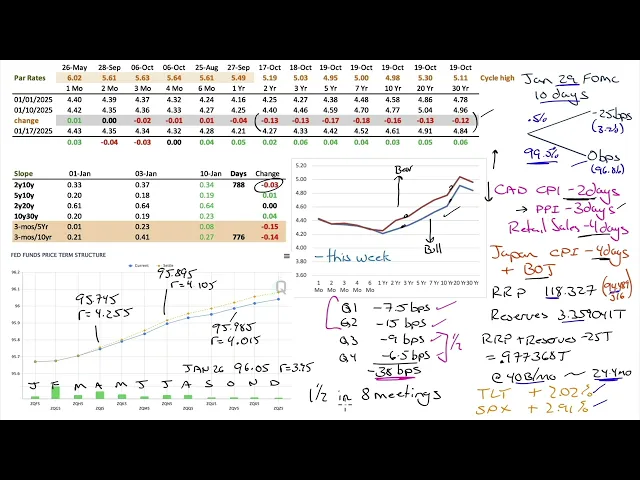 26-May 28-Sep 06-Oct 06-Oct 25-Aug 27-Sep 17-Oct 18-Oct 19-Oct 19-Oct 19-Oct 19-Oct 19-Oct
Par Rates 6.02 5.61 5.63 5.64 5.61 5.49 5.19 5.03 4.95 5.00 4.98 5.30 5.11 Cycle high
1 Mo 2 Mo 3 Mo 4 Mo 6 Mo 1 Yr 2 Yr 3 Yr 5 Yr 7 Yr 10 Yr 20 Yr 30 Yr
01/01/2025 4.40 4.39 4.37 4.32 4.24 4.16 4.25 4.27 4.38 4.48 4.58 4.86 4.78
01/10/2025 4.42 4.35 4.36 4.31 4.25 4.25 4.40 4.46 4.59 4.70 4.77 5.04 4.96
change 0.01 0.00 -0.02 -0.01 0.01 -0.04 -0.13 -0.13 -0.17 -0.18 -0.16 -0.13 -0.12
01/17/2025 4.43 4.35 4.34 4.32 4.28 4.21 4.27 4.33 4.42 4.52 4.61 4.91 4.84
Slope 01-Jan 03-Jan 10-Jan Days Change
2y10y 0.33 0.37 0.34 788 -0.03
5y10y 0.20 0.18 0.19 0.01
2y20y 0.61 0.64 0.64 0.00
10y30y 0.20 0.19 0.23 0.04
3-mos/5Yr 0.01 0.23 0.08 -0.15
3-mos/10yr 0.21 0.41 0.27 776 -0.14
5.20
5.00
4.80
4.60
4.40
4.20
4.00
Bear
Bull
- this week
1 Mo 2 Mo 3 Mo 4 Mo 6 Mo 1 Yr 2 Yr 3 Yr 5 Yr 7 Yr 10 Yr 20 Yr 30 Yr
FED FUNDS PRICE TERM STRUCTURE
Current Settle
96.2
96.1
96
95.9
95.8
95.7
95.6
95.745
r=4.255
95.895
r=4.105
95.985
r=4.015
JAN26 96.05 r=3.95
J F M A M J J A S O N D
Q1 -7.5bps
Q2 -15 bps
Q3 -9 bps
Q4 -6.5bps
1/2
-38bps
1 1/2 in 8 meetings
Jan 29, FOMC
10 days
.5%
-25bps
99.5%
0bps
CAD CPI - 2days
→ PPI - 3days
Retail Sales - 4days
Japan CPI - 4days
+ BOJ
RRP 118.327
Reserves 3.359041T
RRP + Reserves - 2.5T
= .977368T
@ 40B/mo ~ 24.4mo
TLT + 2.02%
SPX + 2.91%